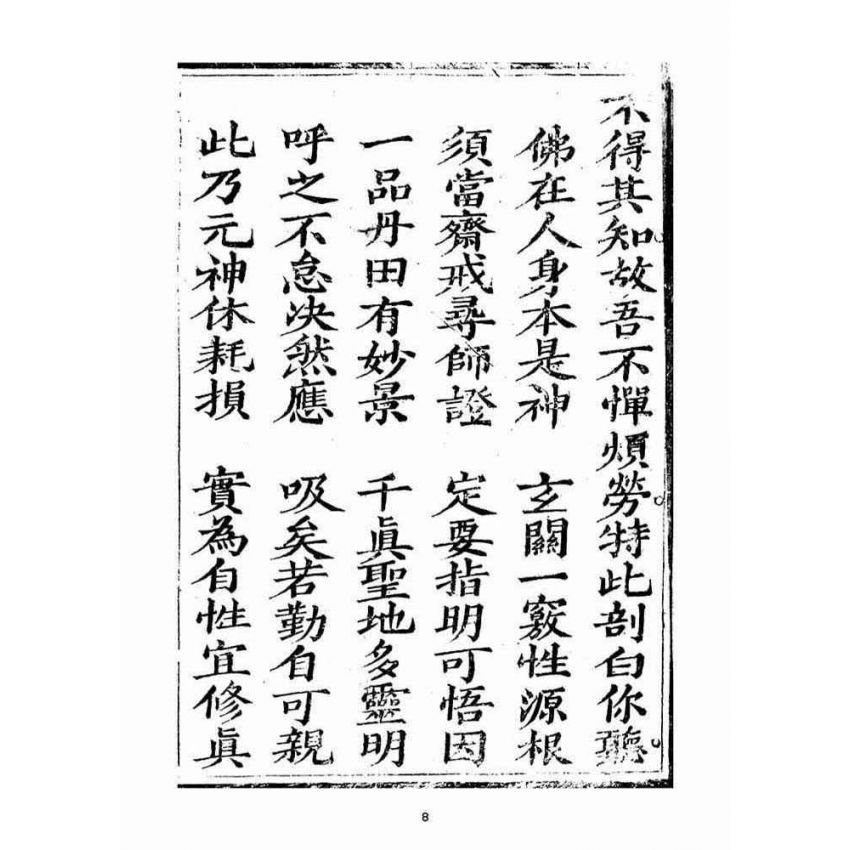 不得其知故吾不憚煩勞特此剖白你聽
佛在人身本是神 玄關一竅性源根
須當齋戒尋師證 定要指明可悟因
一品丹田有妙景 千眞聖地多靈明
呼之不怠决然應 吸矣若勤自可親
此乃元神休耗損 實為自性宜修眞
8